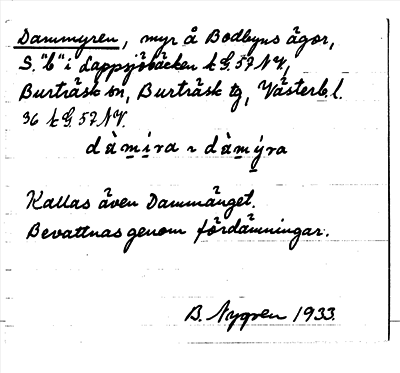 Dammyren, myr å Bodbyns ägor,
S. "b" i Lappsjöbäcken k G. 57 NV,
Burträsk sn, Burträsk tg, Västerb. l.
36 k G. 57 NV.
dàmira ~ dàmýra
Kallas även Dammänget.
Bevattnas genom fördämningar.
B. Nygren 1933.